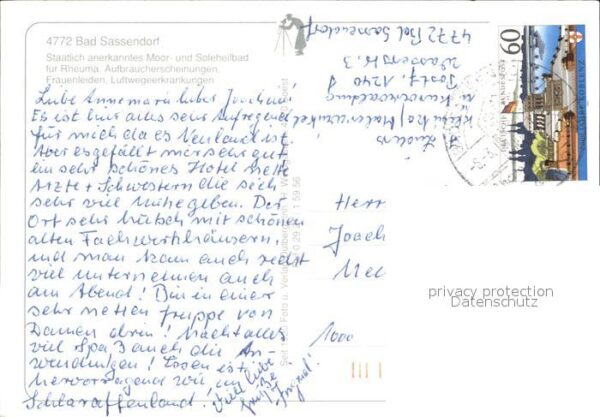 4772 Bad Sassendorf
Staatlich anerkanntes Moor- und Soleheilbad
für Rheuma, Aufbraucherscheinungen,
Frauenleiden, Luftwegeerkrankungen
Liebe Annemarie lieber Joachim!
Es ist hier alles sehr aufregend
für mich da es Neuland ist
Aber es gefällt mir sehr gut
ein sehr schönes Hotel nette
Ärzte + Schwestern die sich
sehr viel Mühe geben. Der
Ort sehr hübsch mit schönen
alten Fachwerkhäusern,
und man kann auch recht
viel unternehmen auch
am Abend! Bin in einer
sehr netten Gruppe von
Damen drin! Macht alles
viel Spaß auch die An-
wendungen! Essen ist
hervorragend wie im
Schlaraffenland!
Viel liebe
Grüße
Ingrid!
Klinik
u. Kurverwaltung
Postf. 1240
Wasserstr. 3
4772 Bad Sassendorf
Herr
Joach
1000
60
DEUTSCHE BUNDESPOST
2000 JAHRE KOBLENZ
privacy protection
Datenschutz